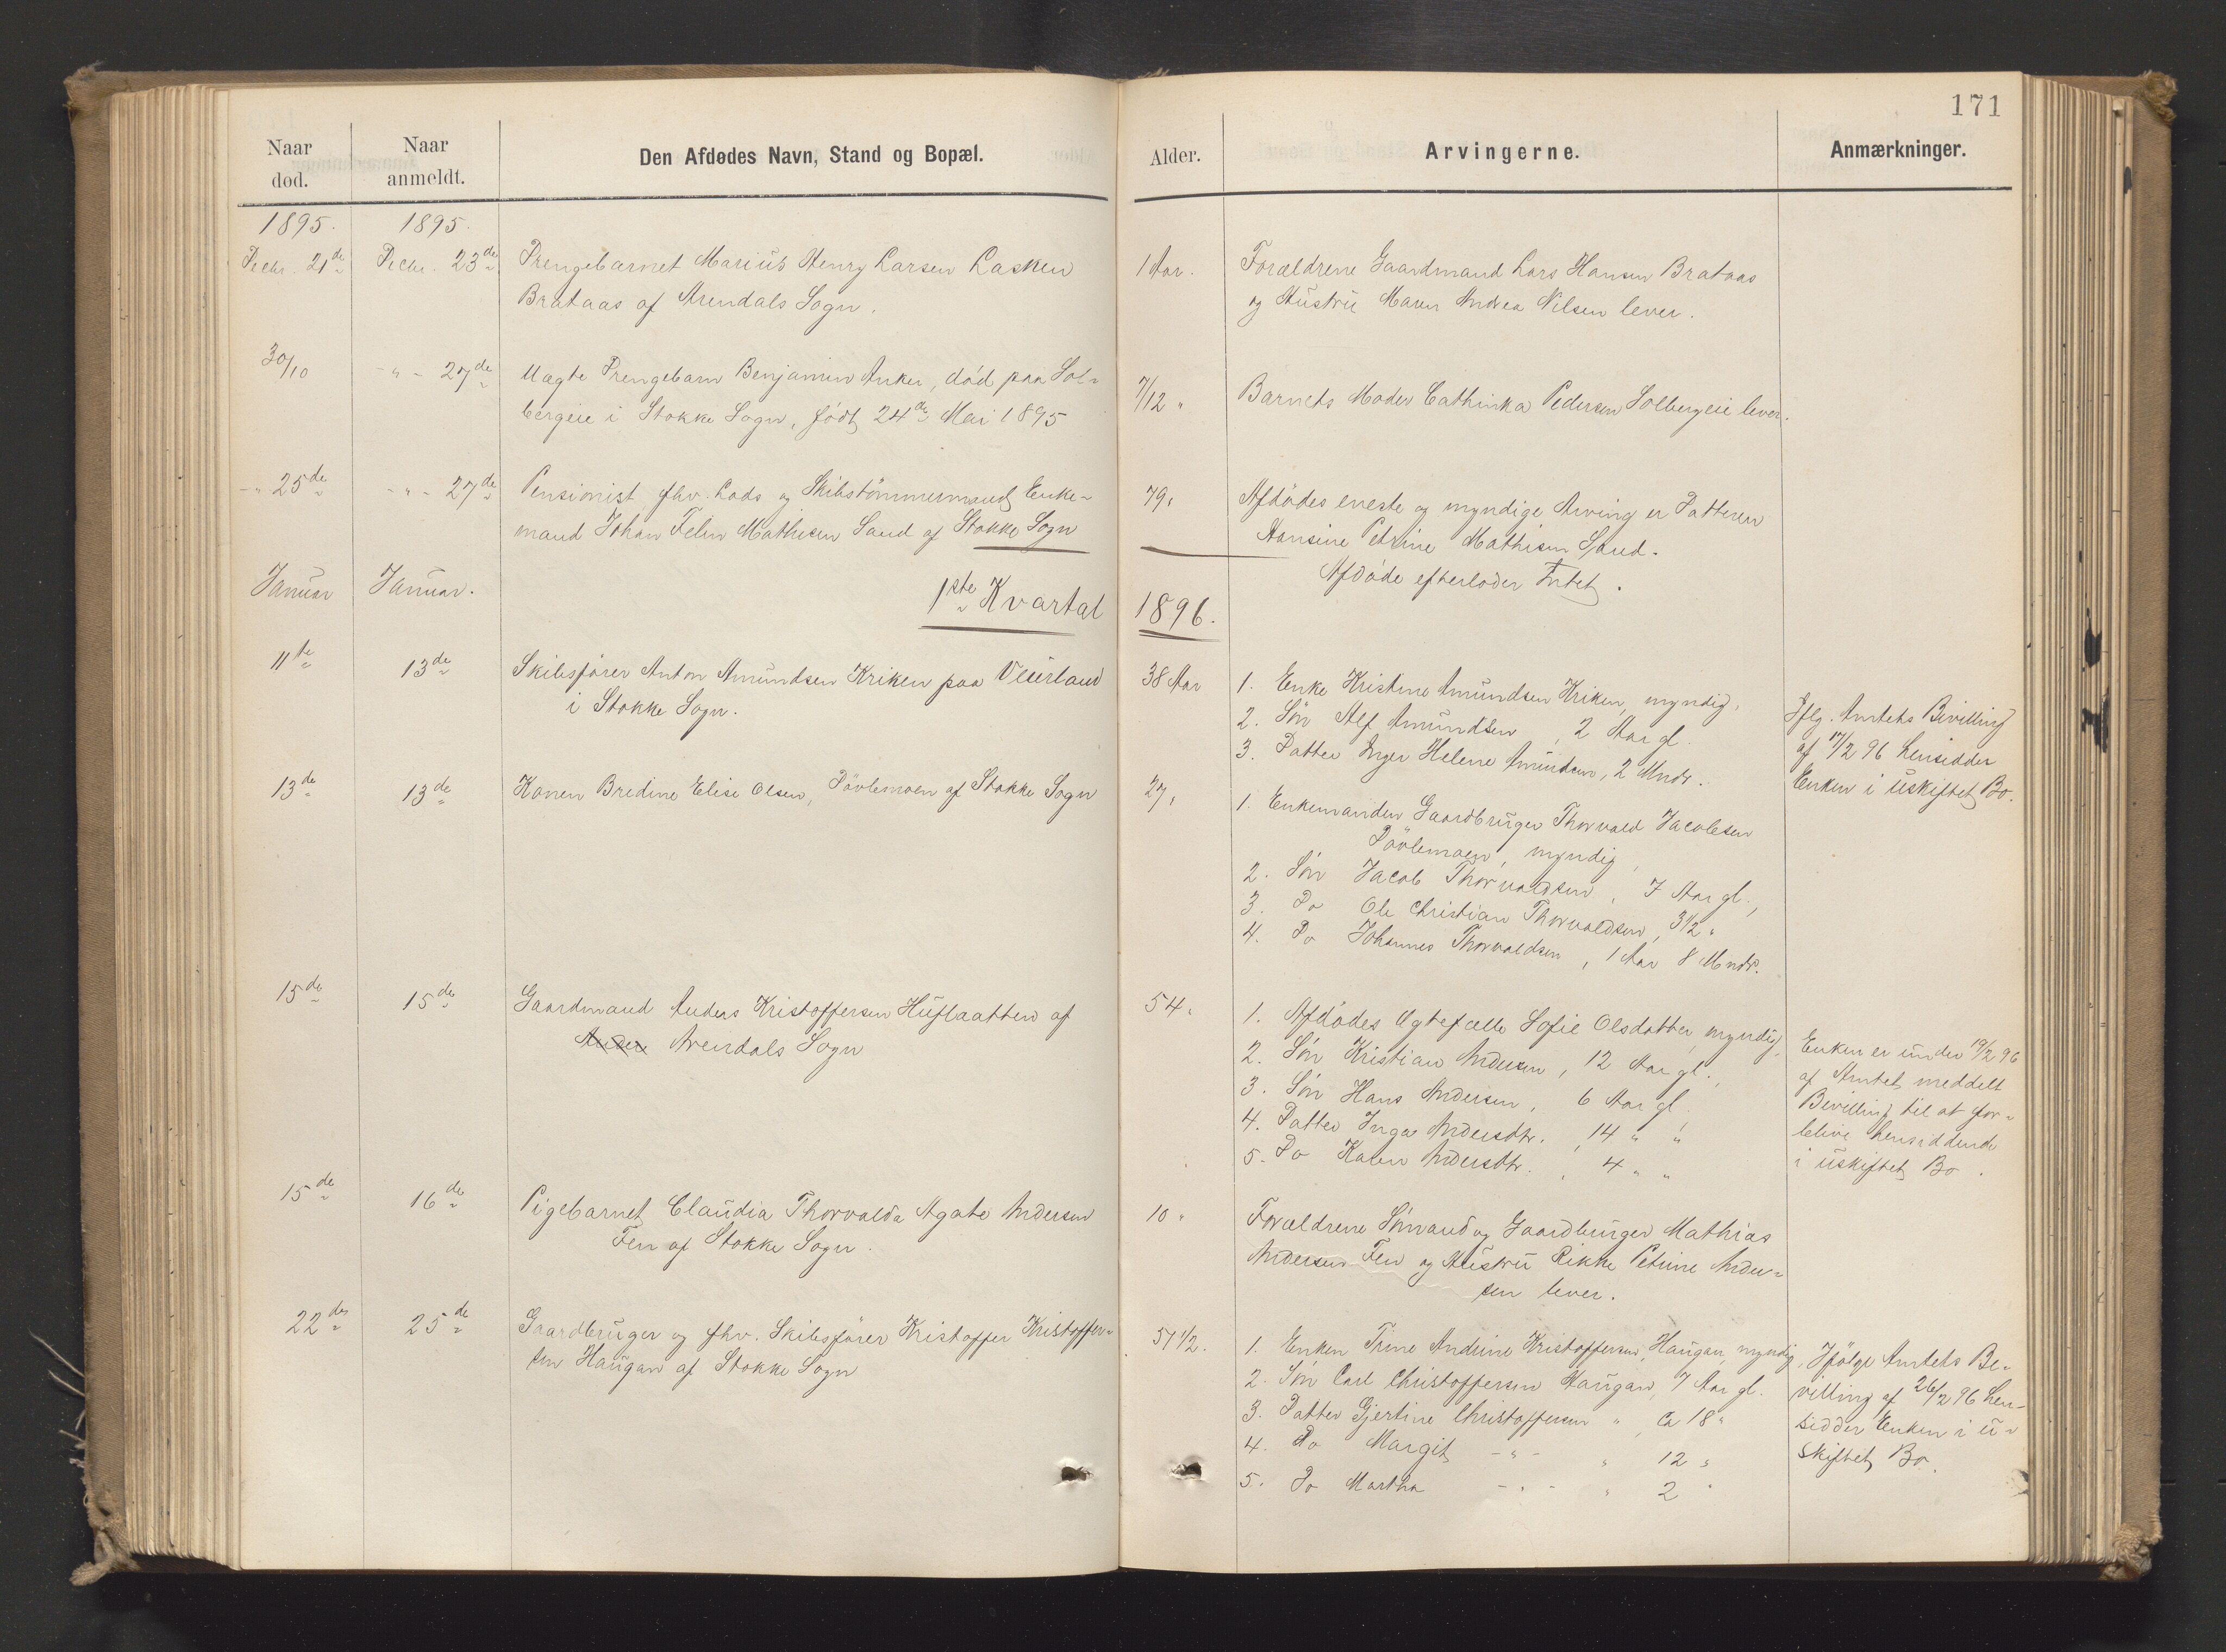 171
Naar død.
Naar anmeldt.
Den Afdødes Navn, Stand og Bopæl.
Alder.
Arvingerne.
Anmærkninger.
1895. 1895.
Decbr. 21de Decbr. 23de Drengebarnet Marius Henry Larsen
Brataas af Arendals Sogn.
1 Aar. Forældrene Gaardmand Lars Hansen Brataas
og Hustru Maren Andrea Nilsen lever.
30/10 - " - 27de Uægte Drengebarn Benjamin Anker, död paa Sol-
bergeie i Stokke Sogn, födt 24de Mai 1895
7/12 " Barnets Moder Cathinka Pedersen Solbergeie lever.
- " 25de - " - 27de Pensionist fhv. Lods og Skibstömmermand Enke-
mand Johan Mathisen Sand af Stokke Sogn
79 " Afdödes eneste og myndige Arving er Datteren
Hansine Petrine Mathisen Sand.
Afdöde efterlader Intet.
Januar Januar.
1ste Kvartal 1896.
11te 13de Skibsförer Anton Amundsen Kriken paa Veierland
i Stokke Sogn.
38 Aar 1. Enke Kristine Amundsen Kriken, myndig,
2. Sön Alf Amundsen, 2 Aar gl.
3. Datter Inger Helene Amundsen, 2 Mndr.
Iflg. Amtets Bevilling
af 17/2 96 hensidder
Enken i uskiftet Bo.
13de 13de Konen Bredine Elise Olsen, Dövlemoen af Stokke Sogn
27 " 1. Enkemanden Gaardbruger Thorvald Jacobsen
Dövlemoen, myndig,
2. Sön Jacob Thorvaldsen, 7 Aar gl.,
3. Do Ole Christian Thorvaldsen, 3 1/2 "
4. Do Johannes Thorvaldsen, 1 Aar 8 Mndr.
15de 15de Gaardmand Anders Kristoffersen Huflaatten af
Arendals Sogn
54 " 1. Afdödes Ægtefælle Sofie Olsdatter, myndig,
2. Sön Kristian Andersen, 12 Aar gl.,
3. Sön Hans Andersen, 6 Aar gl.
4. Datter Inga Andersdtr., 14 " "
5. Do Karen Andersdtr., 4 " "
Enken er under 19/2 96
af Amtet meddelt
Bevilling til at for-
blive hensiddende
i uskiftet Bo.
15de 16de Pigebarnet Claudia Thorvalda Agate Andersen
Fen af Stokke Sogn.
10 " Forældrene Sömand og Gaardbruger Mathias
Andersen Fen og Hustru Rikke Petrine Ander-
sen lever.
22de 25de Gaardbruger og fhv. Skibsförer Kristoffer Kristoffer-
sen Haugan af Stokke Sogn
51 1/2. 1. Enken Trine Andrine Kristoffersen, Haugan, myndig,
2. Sön Carl Christoffersen Haugan, 7 Aar gl.
3. Datter Gjertine Christoffersen " ca 18 "
4. Do Margit - " - " 12 "
5. Do Martha - " - " 2 "
Ifölge Amtets Be-
villing af 26/2 96 hen-
sidder Enken i u-
skiftet Bo.